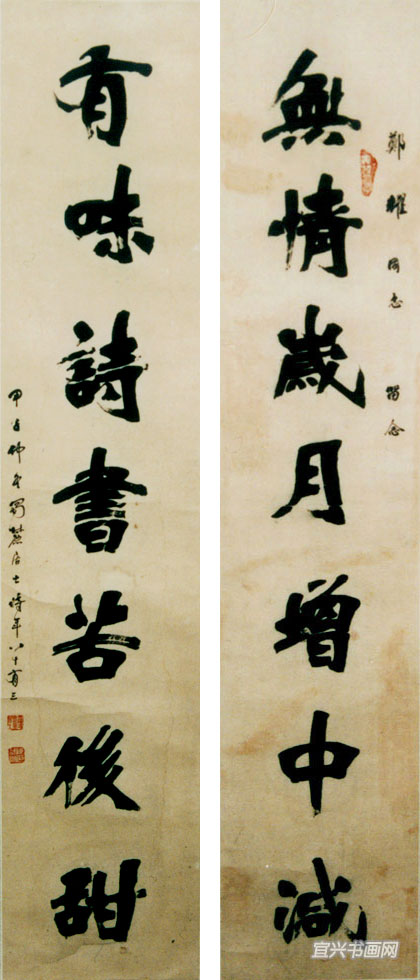 鄭耀同志 留念
無情歲月增中減
有味詩書苦後甜
甲子仲冬蜀麓居士時年八十有三
宜兴书画网